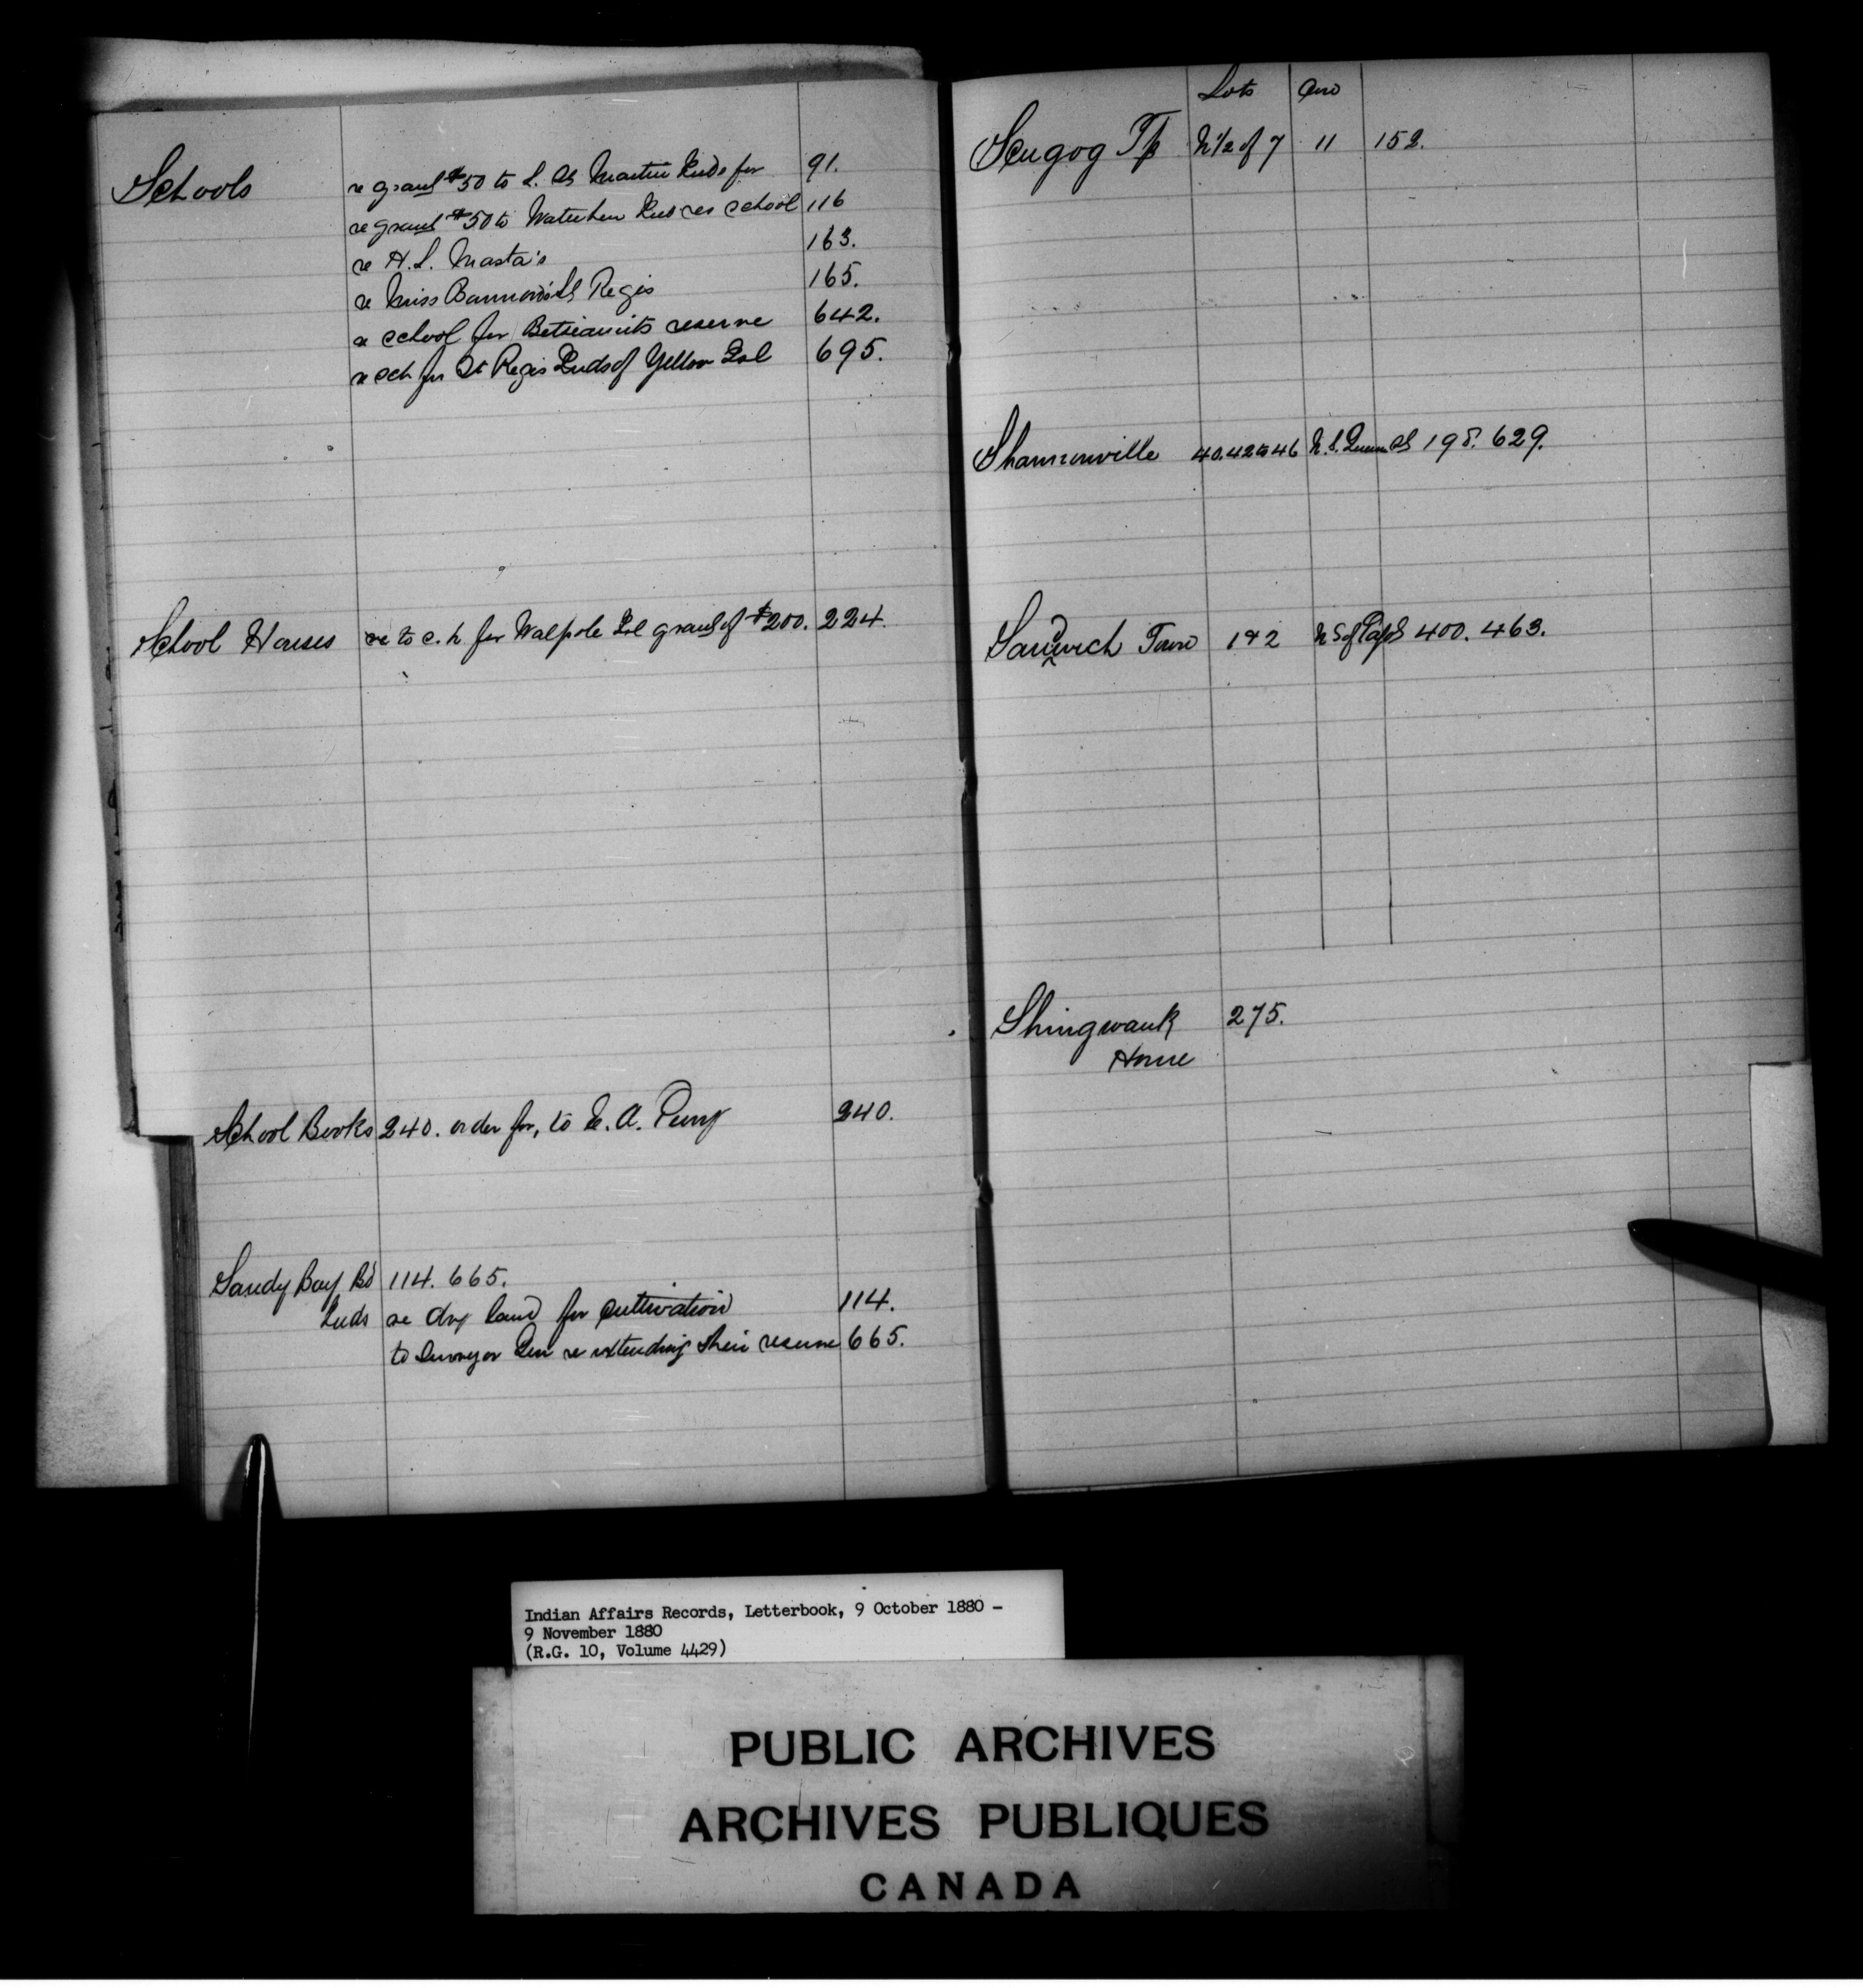 Schools re grant $50 to L. St Martin Inds for 91.
re grant $50 to Waterhen Inds res school 116
re H. L. Masta's 163.
re Miss Regis 165.
re school for Betsiamits reserve 642.
re sch for St Regis Inds of Yellow Isl 695.
School Houses re to s. h for Walpole Isl grant of $200. 224.
School Books 240. order for, to E. A. Perry 240.
Sandy Bay Bd 114. 665.
Inds re dry land for cultivation 114.
to Surveyor Gen re extending their reserve 665.
Lots Con
Scugog Tp N 1/2 of 7 11 152.
Shannonville 40.42 to 46 N. S. Queen St 198. 629.
Sandwich Town 1 & 2 N S of St 400. 463.
Shingwauk 275.
Home
Indian Affairs Records, Letterbook, 9 October 1880 -
9 November 1880
(R.G. 10, Volume 4429)
PUBLIC ARCHIVES
ARCHIVES PUBLIQUES
CANADA